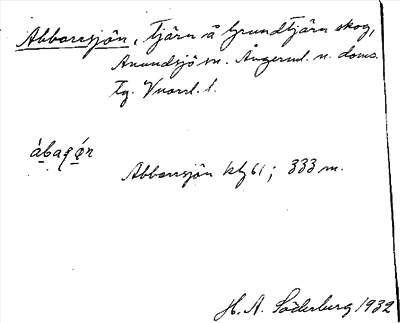 Abborsjön, tjärn å Grundtjärn skog,
Anundsjö sn. Ångerml. n. doms.
Tg. Vnorrl. l.
ábaʂǿn
Abborrsjön kbl 61; 333 m.
H. A. Söderberg 1932